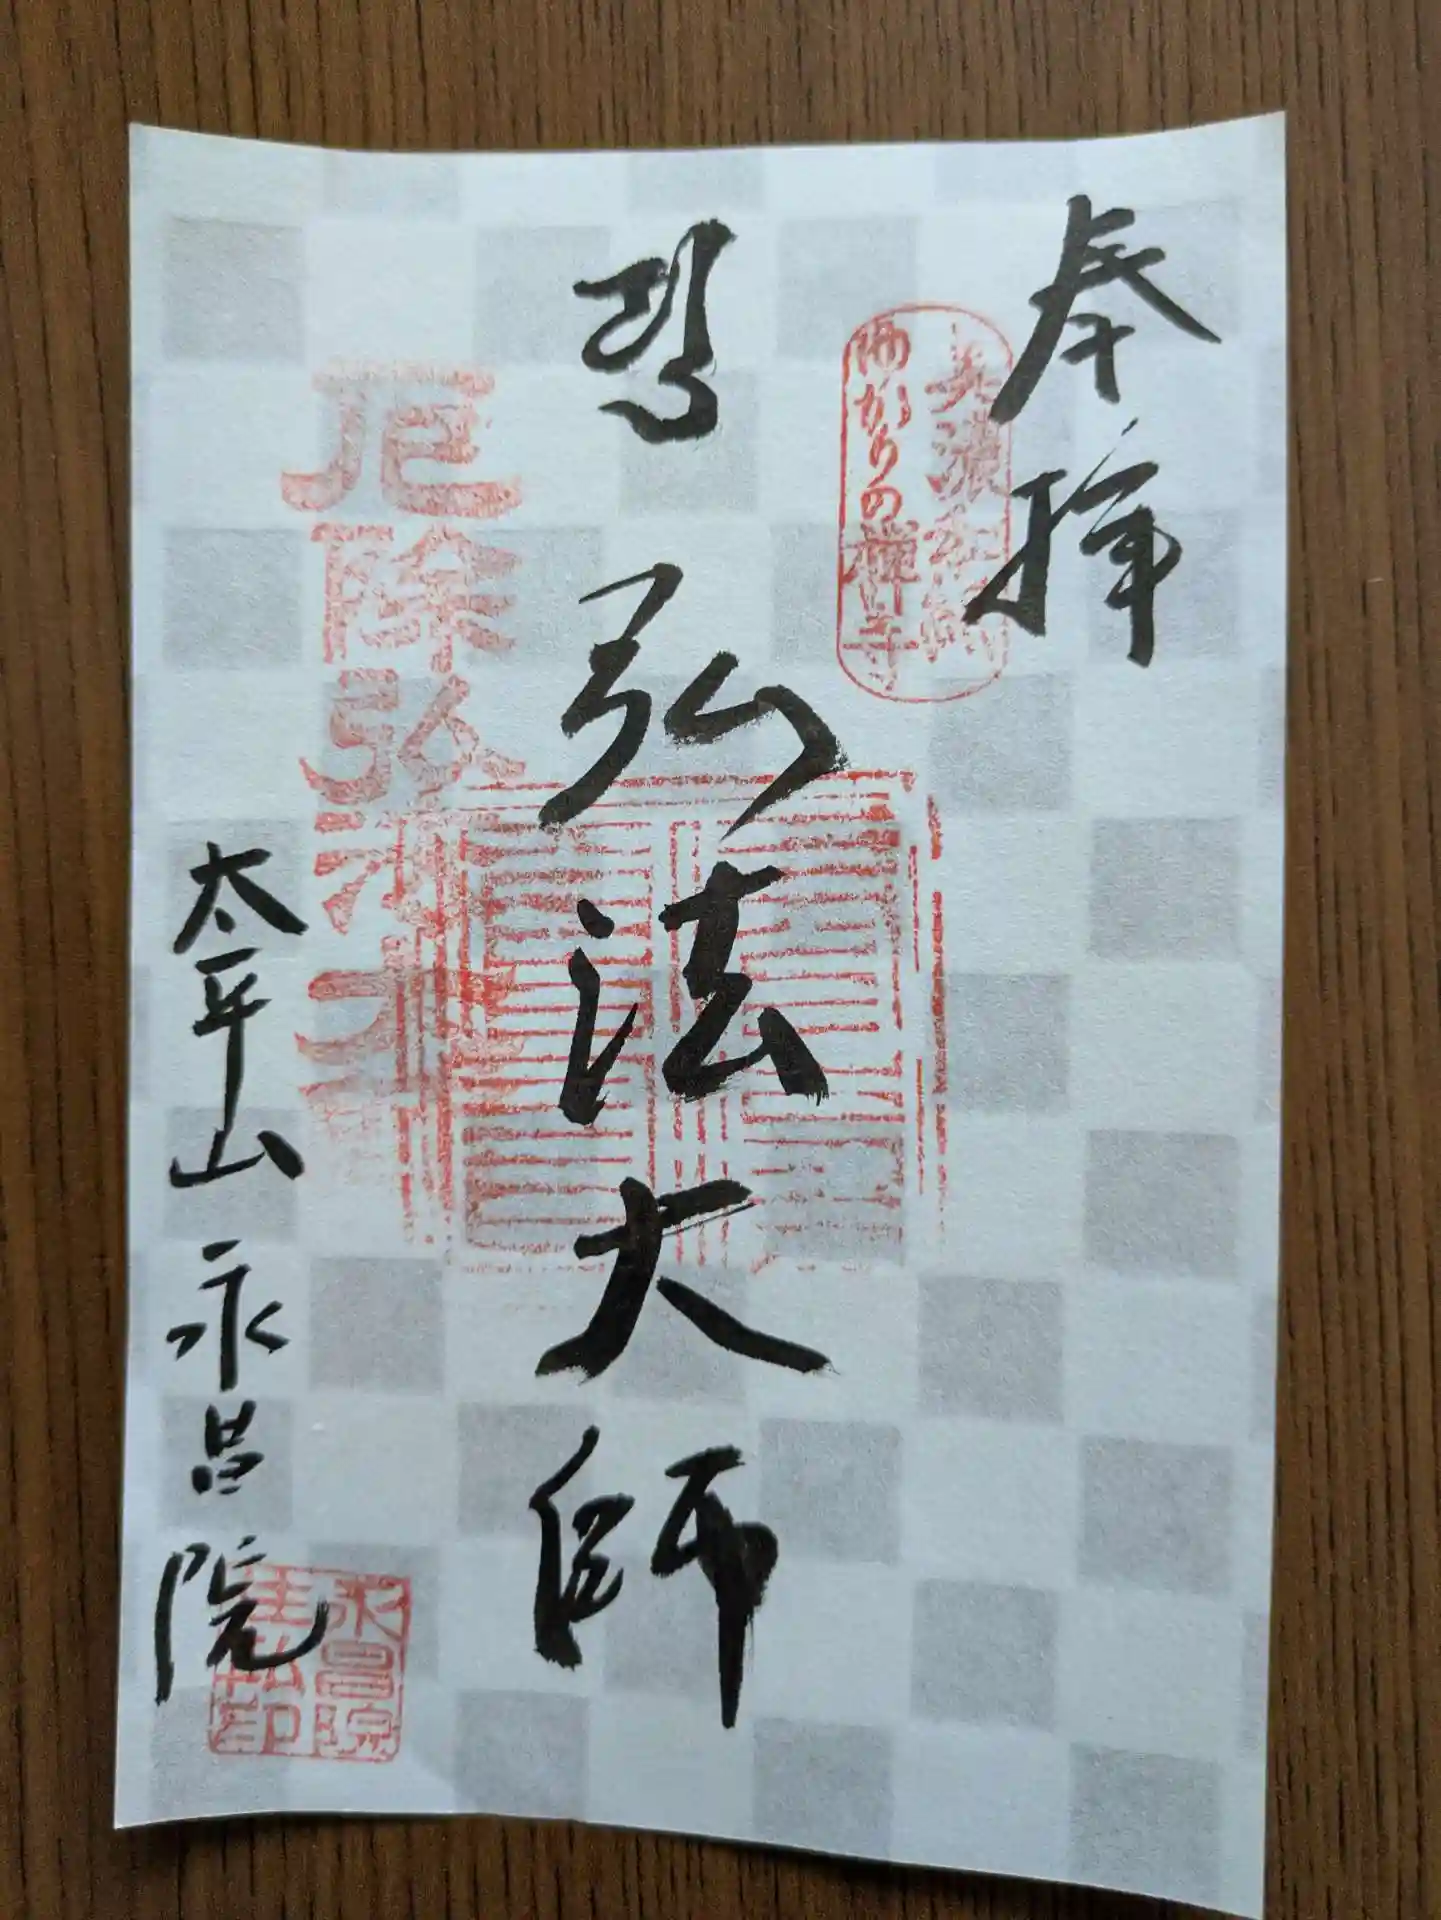 奉拝
ゆかりの禅寺
弘法大師
厄除弘法大師
太平山 永昌院
永昌院